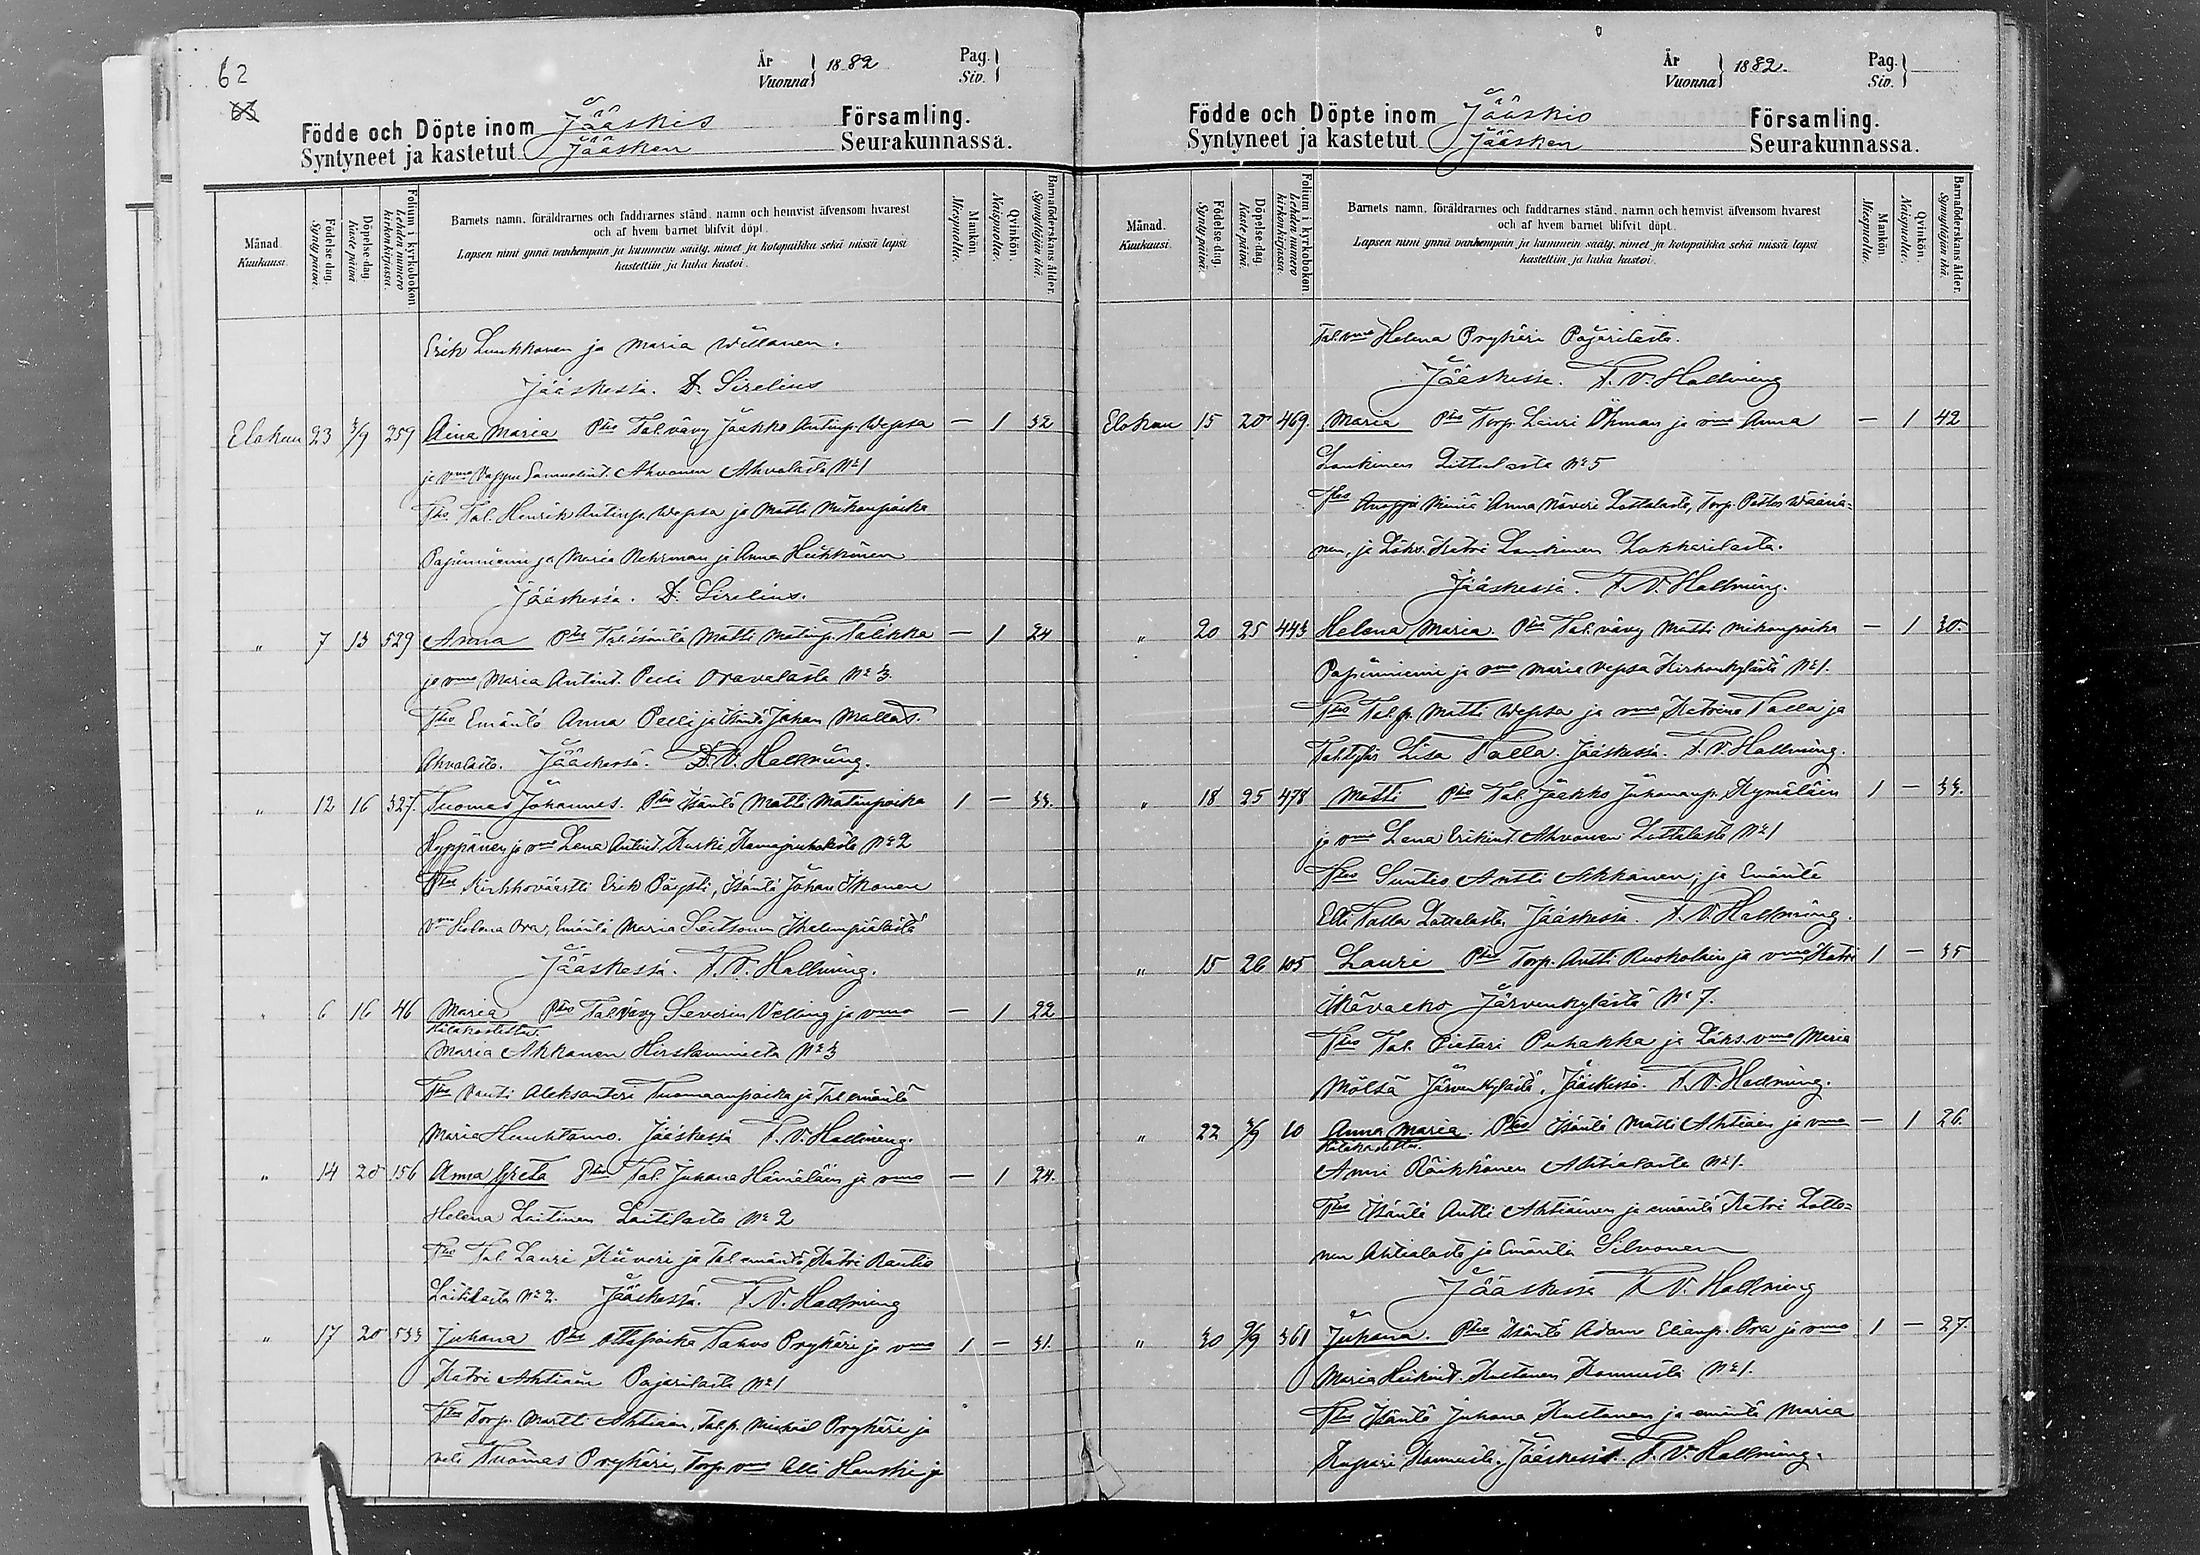 62
63
År Vuonna } 1882 Pag. Siv. }
Födde och Döpte inom Jääskis Församling.
Syntyneet ja kastetut Jääsken Seurakunnassa.
Månad. Kuukausi.
Födelse-dag. Synty-päivä.
Döpelse-dag. Kaste-päivä.
Folium i kyrkoboken Lehden numero kirkonkirjassa.
Barnets namn, föräldrarnes och faddrarnes stånd, namn och hemvist äfvensom hvarest
och af hvem barnet blifvit döpt.
Lapsen nimi ynnä vanhempain ja kummein sääty, nimet ja kotopaikka sekä missä lapsi
kastettiin ja kuka kastoi.
Mankön. Miespuolia.
Qvinkön. Naispuolia.
Barnaföderskans ålder. Synnyttäjän ikä.
Erik Luukkonen ja Maria Willanen.
Jääskessä. D. Sirelius
Elokuu 23 3/9 259 Aina Maria Phs Tal. vävy Jaakko Antinp. Wepsa — 1 32
ja vmo Samuelint. Ahvonen Ahvolasta No 1
Tal. Henrik Antinp. Wepsa ja Matti Mikonpoika
Papinniemi ja Maria Nehrman ja Anna Heikkinen
Jääskessä. D. Sirelius.
" 7 13 529 Anna Phs Tal. isäntä Matti Matinp. Talikka — 1 24
ja vmo Maria Antint. Pelli Oravalasta No 3.
Emäntä Anna Pelli ja Isäntä Johan Mallat.
Ahvolasta. Jääskessä. F. V. Hallming.
" 12 16 327. Tuomas Johannes. Phs Isäntä Matti Matinpoika 1 — 33.
Hyppänen ja vmo Lena Antint. Kurki No 2
Kirkkoväärtti Erik Isäntä Johan Ikonen
vmo Helena Ora, Emäntä Maria Seitsonen
Jääskessä. F. V. Hallming.
" 6 16 46 Maria Phs Tal. vävy Severin Velling ja vmo — 1 22
Hätäkastettu.
Maria Akkanen No 3
Vouti Aleksanteri Tuomaanpoika ja Tal. emäntä
Maria Huuhtamo. Jääskessä F. V. Hallming.
" 14 20 156 Anna Greta Phs Tal. Juhana Hämäläin ja vmo — 1 24.
Helena Laitinen Laitilasta No 2
Tal. Lauri Kiiveri ja Tal. emäntä Katri Rautio
Laitilasta No 2. Jääskessä. F. V. Hallming
" 17 20 533 Juhana Phs Ottopoika Tahvo Prykäri ja vmo 1 — 31.
Katri Ahtiain Pajarilasta No 1
Torp. Martti Ahtiain, Tal. p. Mickael Prykäri ja
veli Tuomas Prykäri, Torp. vmo Alli Hauski ja
År Vuonna } 1882. Pag. Siv. }
Födde och Döpte inom Jääskis Församling.
Syntyneet ja kastetut Jääsken Seurakunnassa.
Månad. Kuukausi.
Födelse-dag. Synty-päivä.
Döpelse-dag. Kaste-päivä.
Folium i kyrkoboken Lehden numero kirkonkirjassa.
Barnets namn, föräldrarnes och faddrarnes stånd, namn och hemvist äfvensom hvarest
och af hvem barnet blifvit döpt.
Lapsen nimi ynnä vanhempain ja kummein sääty, nimet ja kotopaikka sekä missä lapsi
kastettiin ja kuka kastoi.
Mankön. Miespuolia.
Qvinkön. Naispuolia.
Barnaföderskans ålder. Synnyttäjän ikä.
Tal. vmo Helena Prykäri Pajarilasta.
Jääskessä. F. V. Hallming
Elokuu 15 20 469. Maria Phs Torp. Lauri Öhman ja vmo Anna — 1 42
Laukinen No 5
Miniä Anna Näveri Lottolasta, Torp. Petter Wääriä=
nen, ja Löks. Katri Laukinen
Jääskessä. F. V. Hallming.
" 20 25 443 Helena Maria. Phs Tal. vävy Matti Mikonpoika — 1 30.
Papinniemi ja vmo Maria Vepsa Kirkonkylästä No 1.
Tal. p. Matti Wepsa ja vmo Katrina Talla ja
Tal. tytär Lisa Talla. Jääskessä. F. V. Hallming.
" 18 25 478 Matti Phs Tal. Jaakko Juhananp. Kymäläin 1 — 33.
ja vmo Lena Erikint. Ahvonen Lottolasta No 1
Suntio Antti Akkanen, ja Emäntä
Elli Talla Lottolasta, Jääskessä. F. V. Hallming.
" 15 26 105 Lauri Phs Torp. Antti Ruokolain ja vmo Katri 1 — 35
Ikävalko Järvenkylästä No 7.
Tal. Pietari Puhakka ja Löks. vmo Maria
Mölsä Järvenkylästä. Jääskessä. F. V. Hallming.
" 22 3/9 10 Anna Maria. Phs Isäntä Matti Ahtiain ja vmo — 1 26.
Hätäkastettu.
Anni Räikkönen Ahtialasta No 1.
Isäntä Antti Ahtiainen ja emäntä Katri Lotto=
nen Ahtialasta ja Emäntä Silvonen
Jääskessä F. V. Hallming
" 30 9/9 361 Juhana. Phs Isäntä Adam Elianp. Ora ja vmo 1 — 27.
Maria Heikint. Kultanen Kannusta No 1.
Isäntä Juhana Kultanen ja emäntä Maria
Kupari Jääskessä. F. V. Hallming.